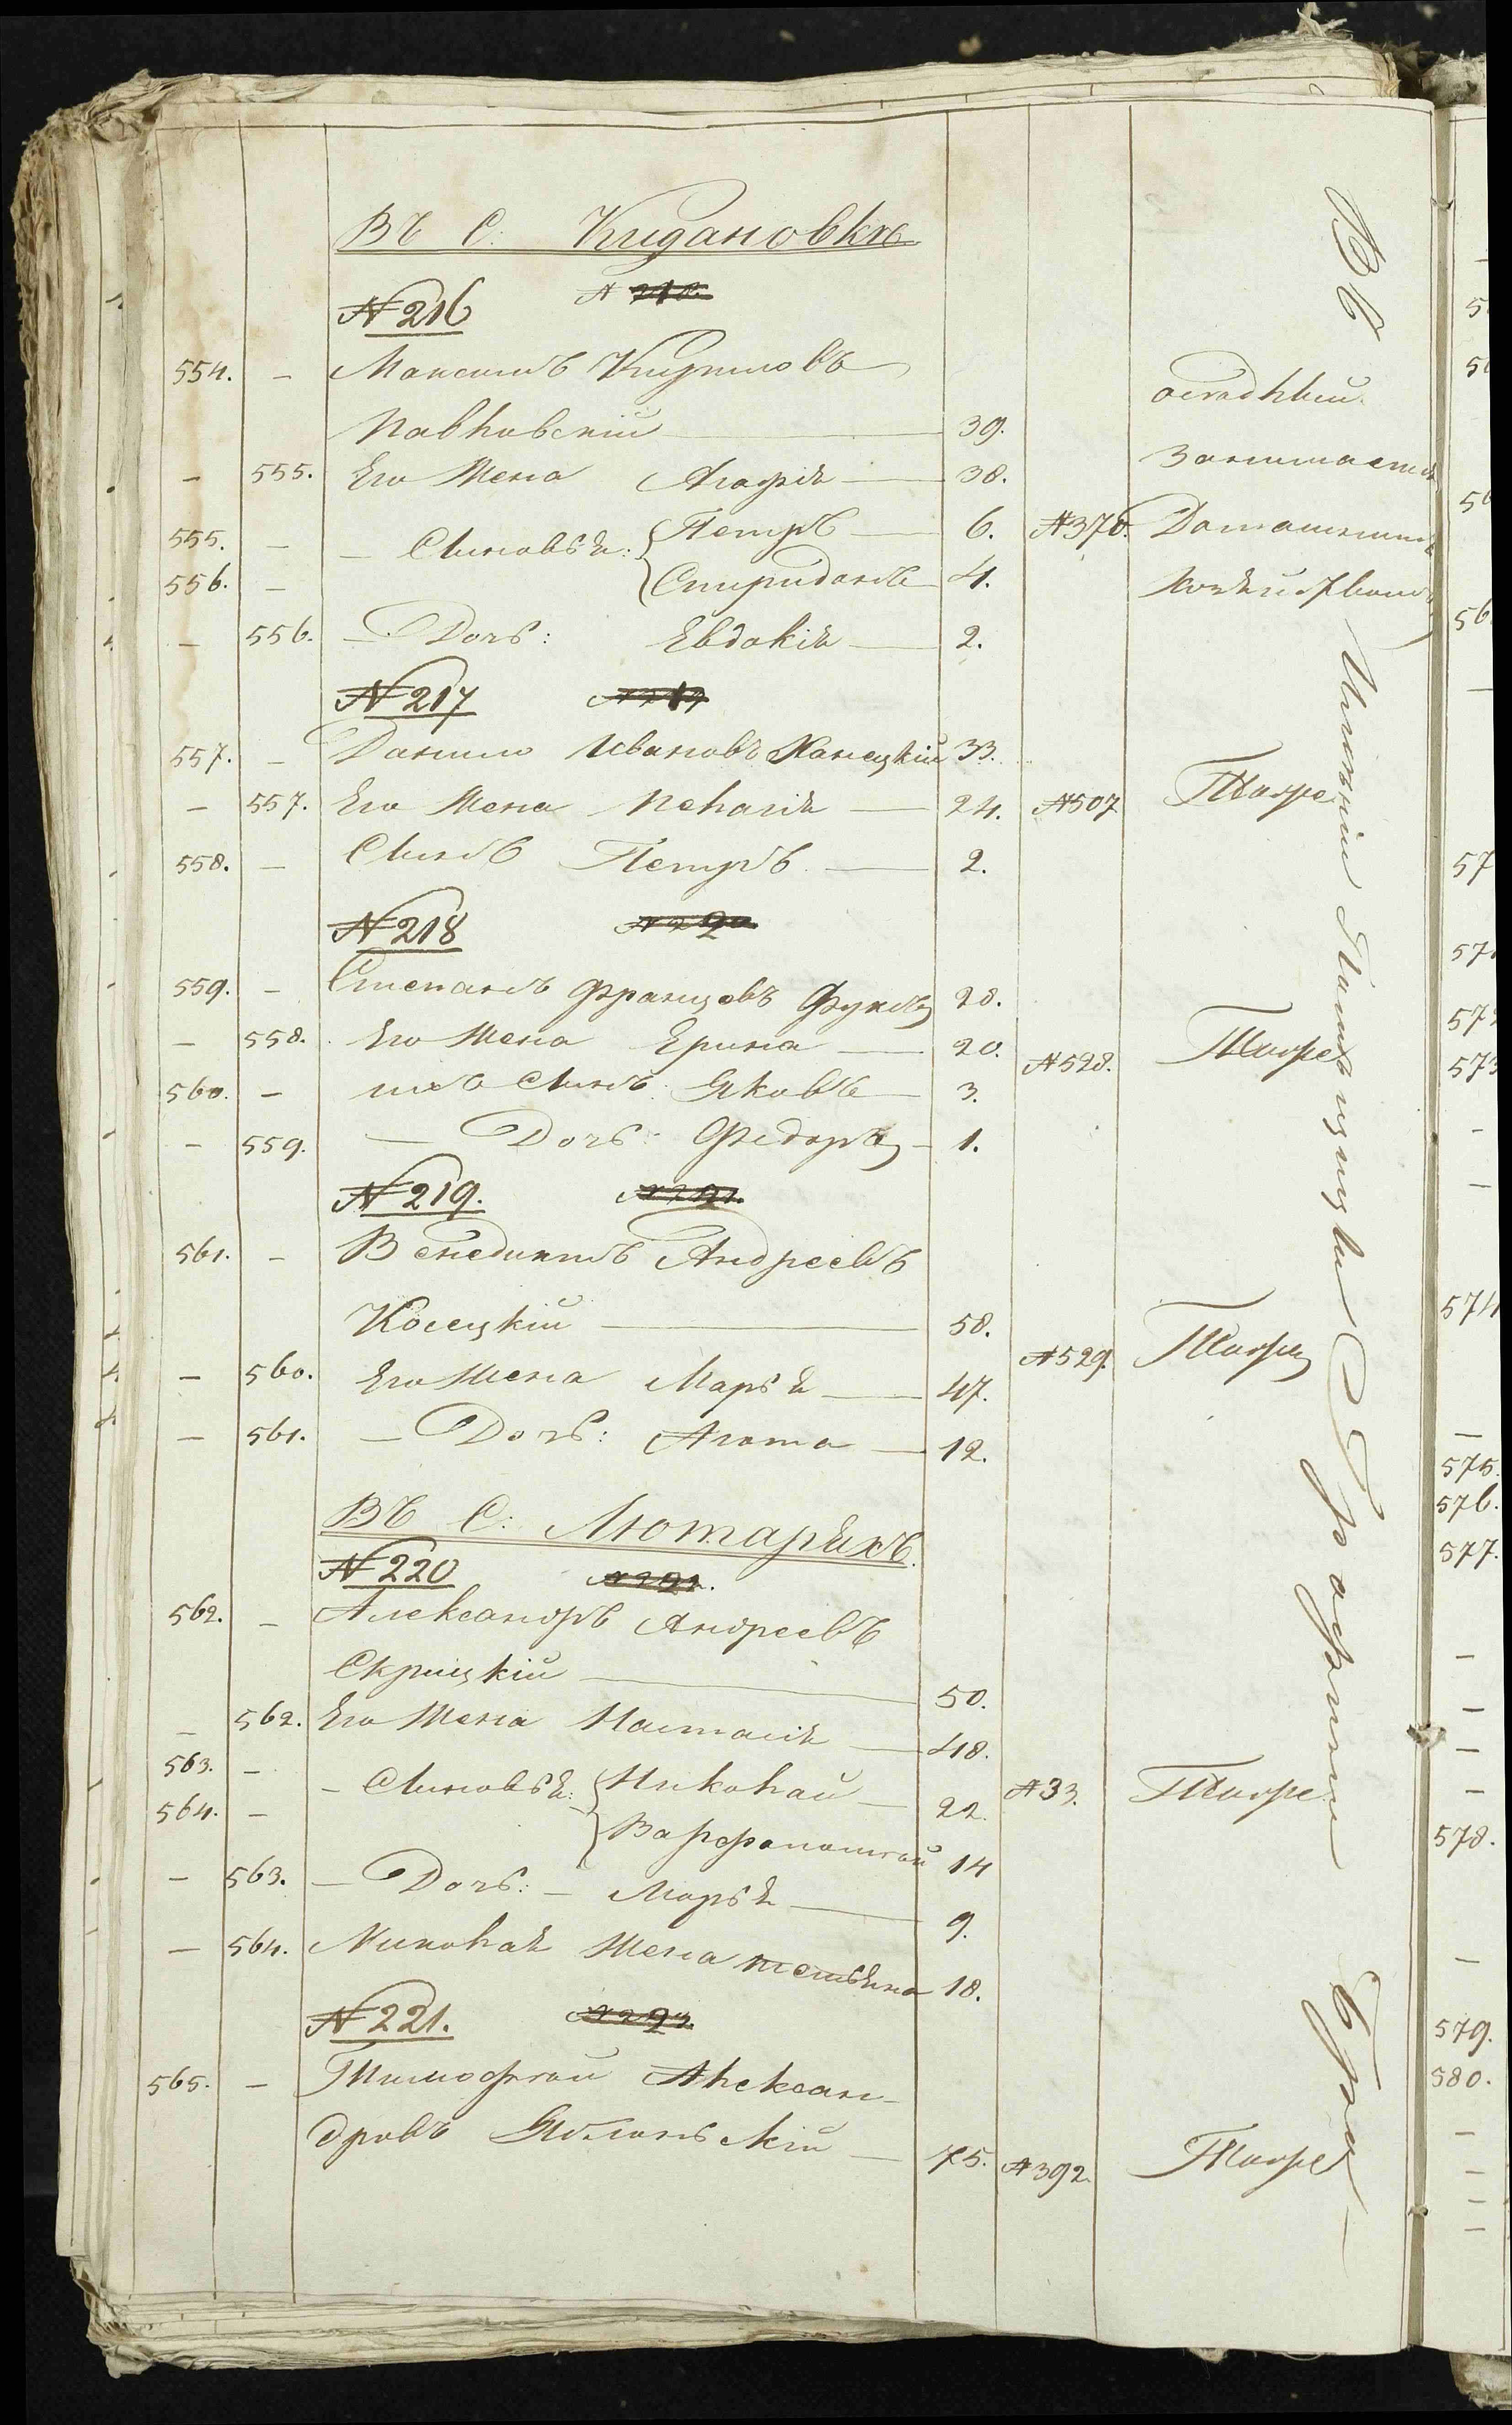 Въ С: Кидановке
№ 216
554. — Максимъ Кириловъ
Павловскій — 39. оседлый.
— 555. Его Жена Агафія — 38. Занимается
555. — — Сыновья: Петръ — 6. №370. Домашнимъ
556. — Спиридонъ 4. хозяйствомъ
— 556. — Дочь: Евдокія — 2.
№ 217
557. — Данило Ивановъ Ханецкій 33.
— 557. Его Жена Пелагія — 24. №507 Тоже
558. — Сынъ Петръ — 2.
№ 218
559. — Степанъ Францовъ 28.
— 558. Его Жена Ерина — 20. №528. Тоже
560. — ихъ Сынъ Яковъ — 3.
— 559. — Дочь: Федора — 1.
№ 219.
561. — Венедиктъ Андреевъ
Косецкій — 58.
— 560. Его Жена Марья — 47. №529. Тоже
— 561. — Дочь: Агата — 12.
Въ С: Лютаряхъ.
№ 220
562. — Александръ Андреевъ
Скрицкій — 50.
— 562. Его Жена Настасія — 48.
563. — — Сыновья: Николай — 22. №33. Тоже
564. — Варфоломей 14
— 563. — Дочь: — Марья — 9.
— 564. Николая Жена 18.
№ 221.
565. — Тимофей Алексан-
дровъ Яблонскій — 75. №392. Тоже
Въ